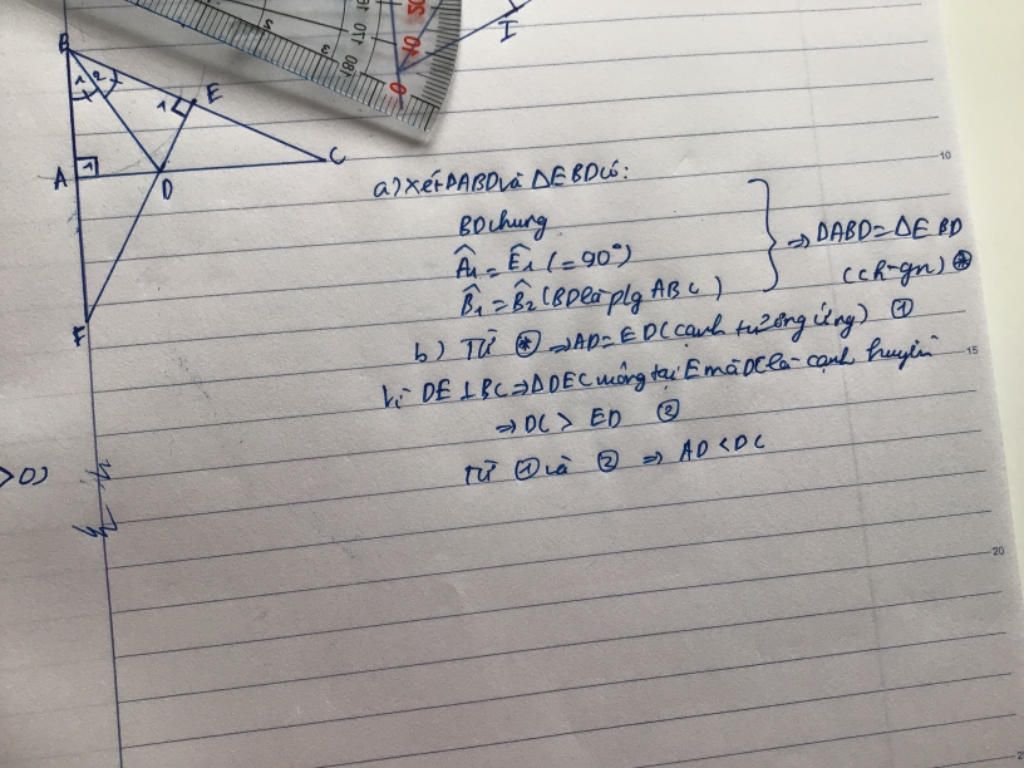 I
B
1 2
1
E
A
1
D
C
F
10
a) Xét ΔABD và ΔEBD có:
BD chung
Â₁ = Ê₁ (= 90°)
B̂₁ = B̂₂ (BD là p/g ABC)
⇒ ΔABD = ΔEBD
(ch-gn) ⊛
b) Từ ⊛ ⇒ AD = ED (cạnh tương ứng) ①
Vì DE ⊥ BC ⇒ ΔDEC vuông tại E mà DC là cạnh huyền
15
⇒ DC > ED ②
Từ ① và ② ⇒ AD < DC
>0)
20